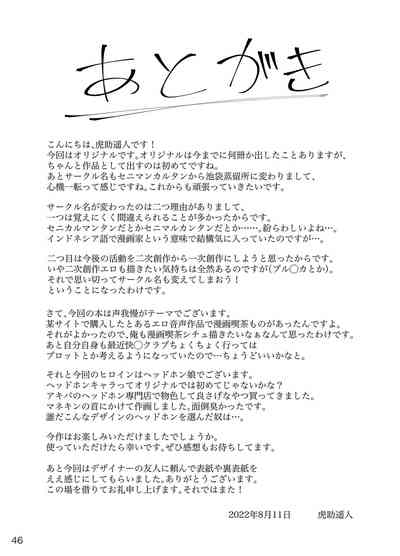 あとがき
こんにちは、虎助遥人です！
今回はオリジナルです。オリジナルは今までに何冊か出したことありますが、
ちゃんと作品として出すのは初めてですね。
あとサークル名もセニマンカルタンから池袋蒸留所に変わりまして、
心機一転って感じですね。これからも頑張っていきたいです。
サークル名が変わったのは二つ理由がありまして、
一つは覚えにくく間違えられることが多かったからです。
セニカルマンタンだとかセニマルカンタンだとか……。紛らわしいよね…。
インドネシア語で漫画家という意味で結構気に入っていたのですが…。
二つ目は今後の活動を二次創作から一次創作にしようと思ったからです。
いや二次創作エロも描きたい気持ちは全然あるのですが(ブル◯カとか)。
それで思い切ってサークル名も変えてしまおう！
ということになったわけです。
さて、今回の本は声我慢がテーマでございます。
某サイトで購入したとあるエロ音声作品で漫画喫茶ものがあったんですよ。
それがよかったので、俺も漫画喫茶シチュ描きたいなぁなんて思ったわけです。
あと自分自身も最近快◯クラブちょくちょく行っては
プロットとか考えるようになっていたので…ちょうどいいかなと。
それと今回のヒロインはヘッドホン娘でございます。
ヘッドホンキャラってオリジナルでは初めてじゃないかな？
アキバのヘッドホン専門店で物色して良さげなやつ買ってきました。
マネキンの首にかけて作画しました。面倒臭かったです。
誰だこんなデザインのヘッドホンを選んだ奴は…。
今作はお楽しみいただけましたでしょうか。
使っていただけたら幸いです。ぜひ感想もお待ちしてます。
あと今回はデザイナーの友人に頼んで表紙や裏表紙を
ええ感じにしてもらいました。ありがとうございます。
この場を借りてお礼申し上げます。それではまた！
2022年8月11日　　虎助遥人
46